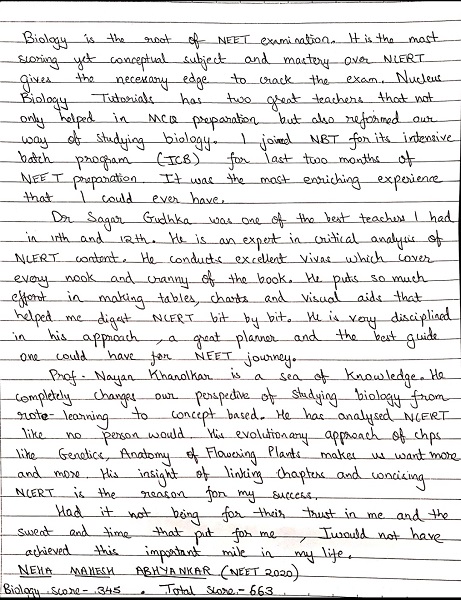 Biology is the root of NEET examination. It is the most
scoring yet conceptual subject and mastery over NCERT
gives the necessary edge to crack the exam. Nucleus
Biology Tutorials has two great teachers that not
only helped in MCQ preparation but also reformed our
way of studying biology. I joined NBT for its intensive
batch program (ICB) for last two months of
NEET preparation It was the most enriching experience
that I could ever have.
Dr Sagar Gudhka was one of the best teachers I had
in 11th and 12th. He is an expert in critical analysis of
NCERT content. He conducts excellent vivas which cover
every nook and cranny of the book. He puts so much
effort in making tables, charts and visual aids that
helped me digest NCERT bit by bit. He is very disciplined
in his approach, a great planner and the best guide
one could have for NEET journey.
Prof. Nayan Khanolkar is a sea of knowledge. He
completely changes our perspective of studying biology from
rote-learning to concept based. He has analysed NCERT
like no person would. His evolutionary approach of chps
like Genetics, Anatomy of Flowering Plants makes us want more
and more. His insight of linking chapters and concising
NCERT is the reason for my success.
Had it not being for their trust in me and the
sweat and time that put for me, I would not have
achieved this important mile in my life.
NEHA MAHESH ABHYANKAR (NEET 2020)
Biology score - 345. Total score - 663